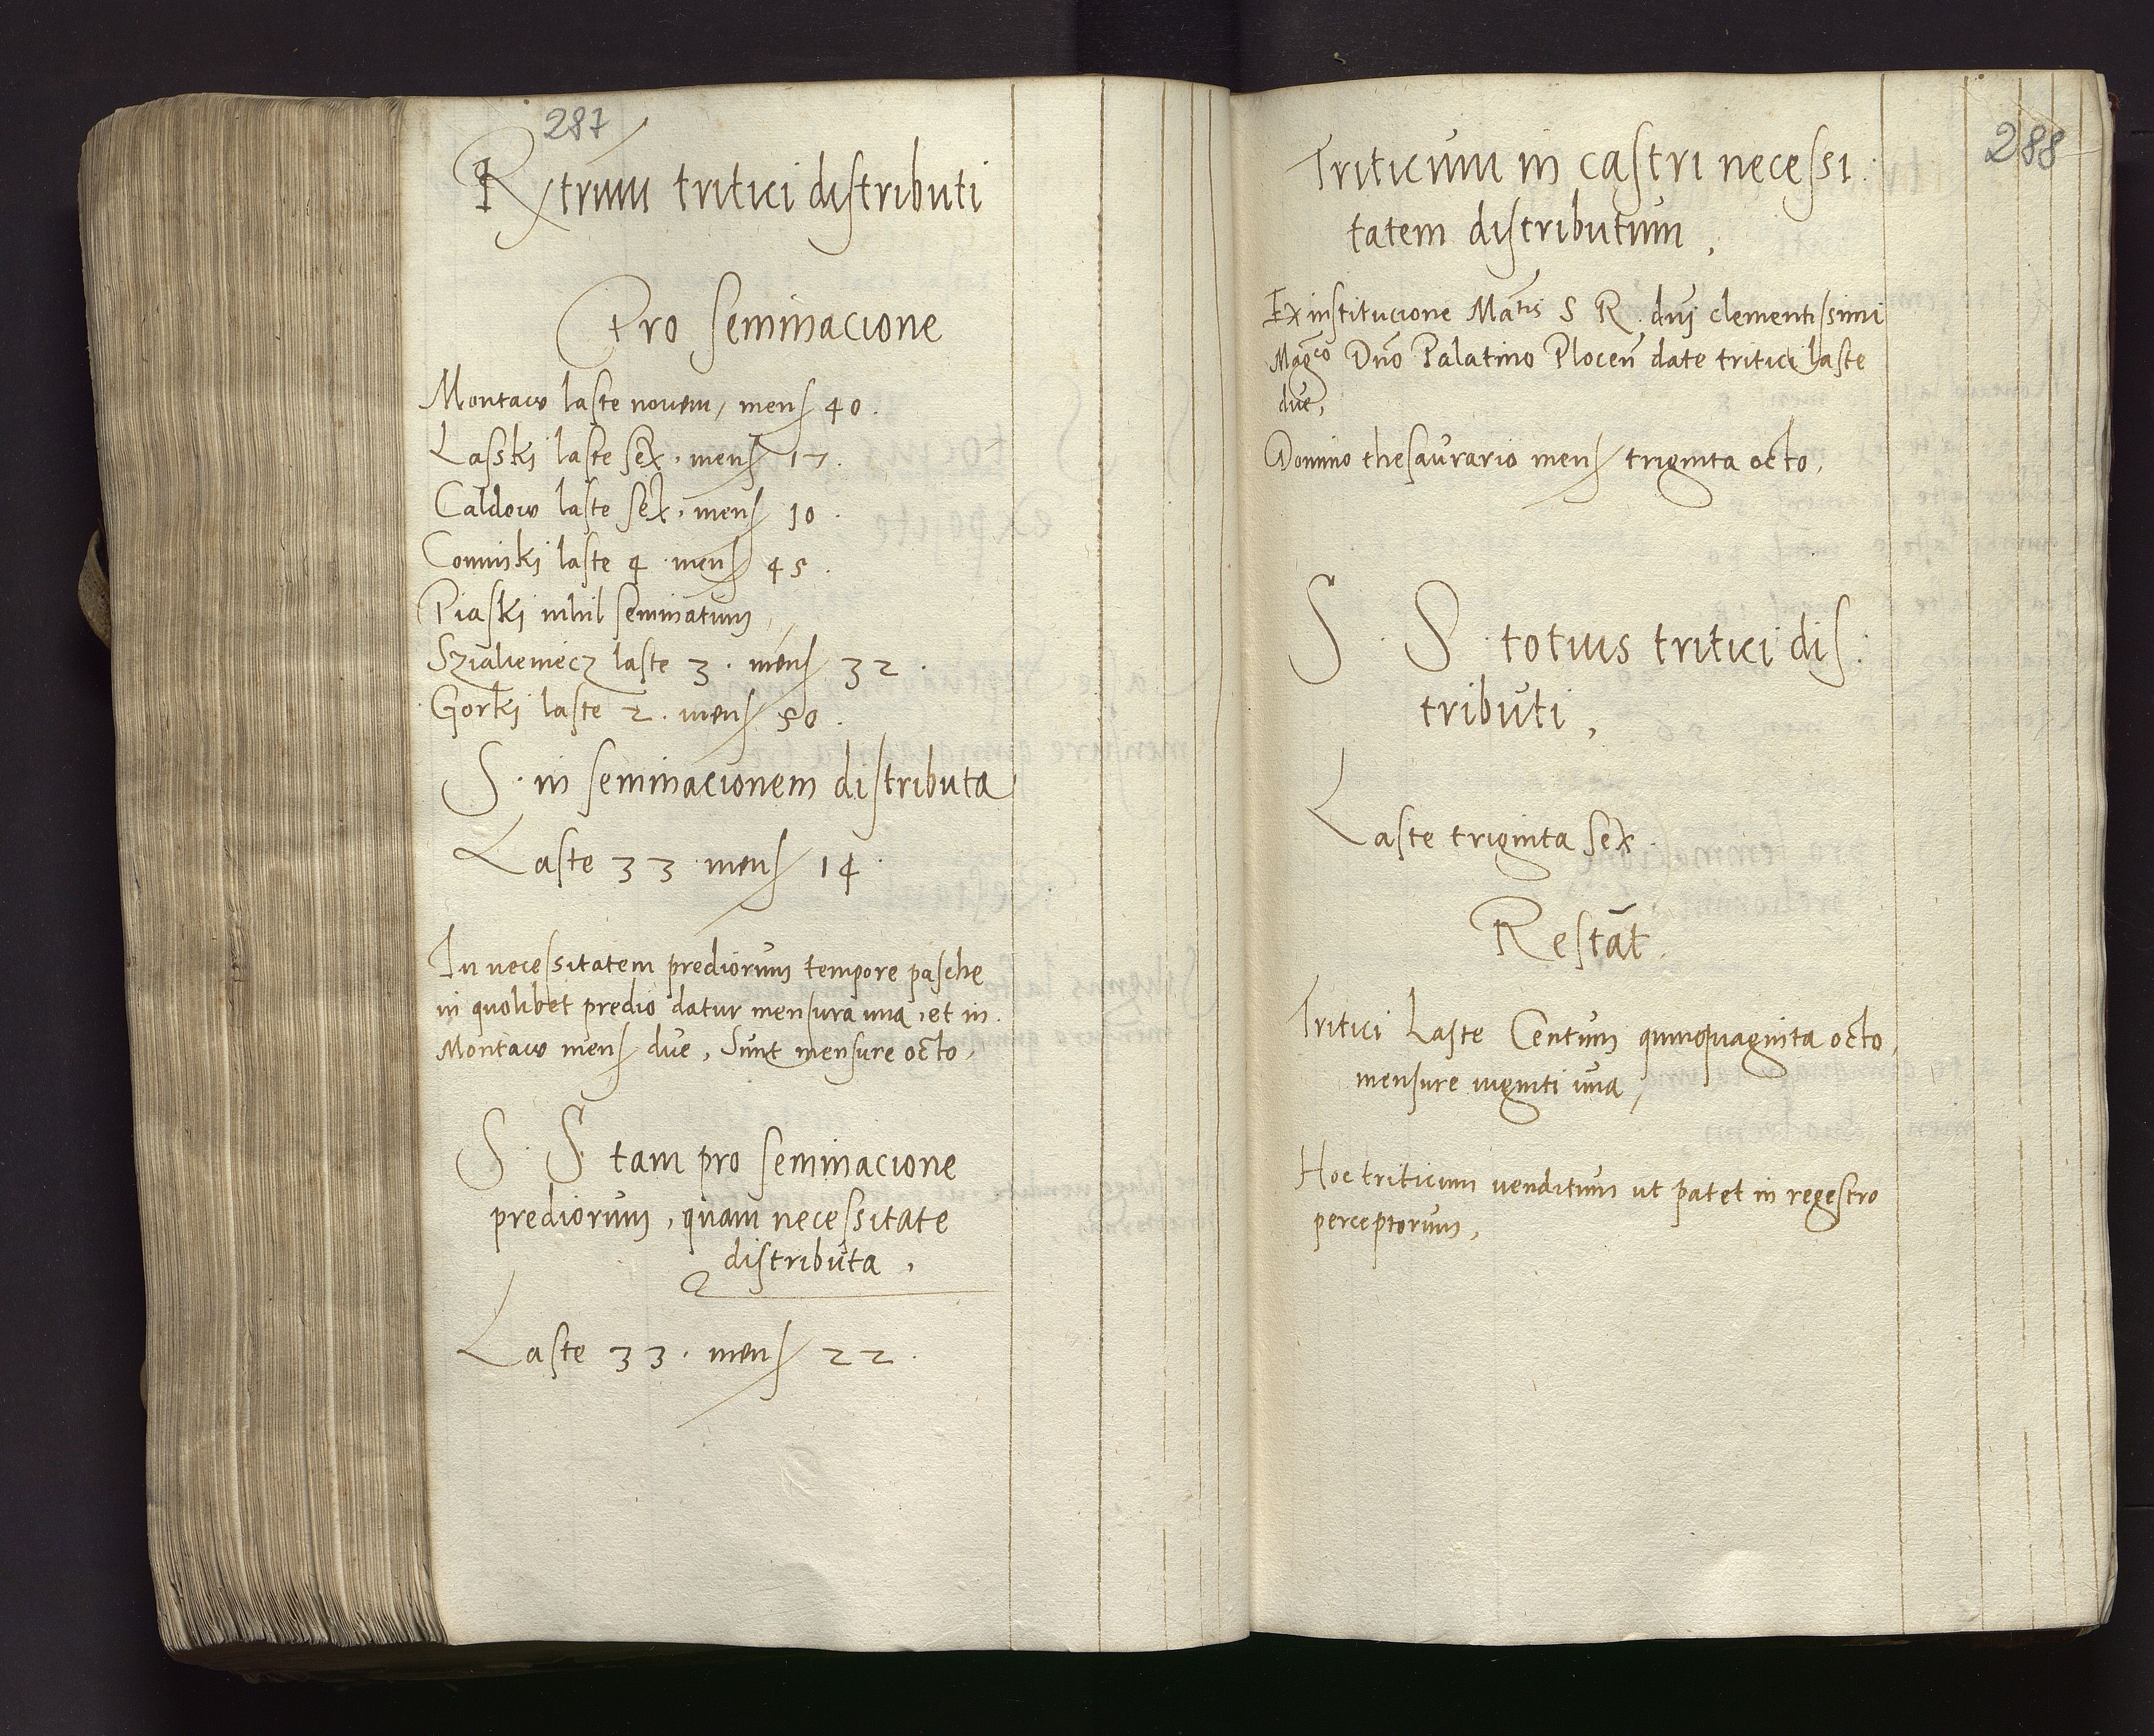 287
Rxtrum tritici distributi
Pro seminacione
Montaw laste novem, mens 40.
Lasski laste sex, mens 17.
Caldow laste sex, mens 10.
Comiski laste 4 mens 45.
Piaski nihil seminatum,
laste 3. mens 32.
Gorki laste 2. mens 50.
S. in seminacionem distributa
Laste 33 mens 14.
In necessitatem prediorum tempore paschę
in quolibet predio datur mensura una, et in
Montaw mens due, Sunt mensure octo,
S. S tam pro seminacione
prediorum, quam necessitate
distributa,
Laste 33. mens 22.
288
Triticum in castri necessi
tatem distributum,
Ex institucione Matis S R. dni clementissimi
Magco Dno Palatino Plocen date tritici laste
due,
Domino thesaurario mens triginta octo,
S. S totius tritici dis
tributi,
Laste triginta sex.
Restat.
Tritici Laste Centum quinquaginta octo,
mensure viginti una,
Hoc triticum venditum ut patet in regestro
perceptorum,